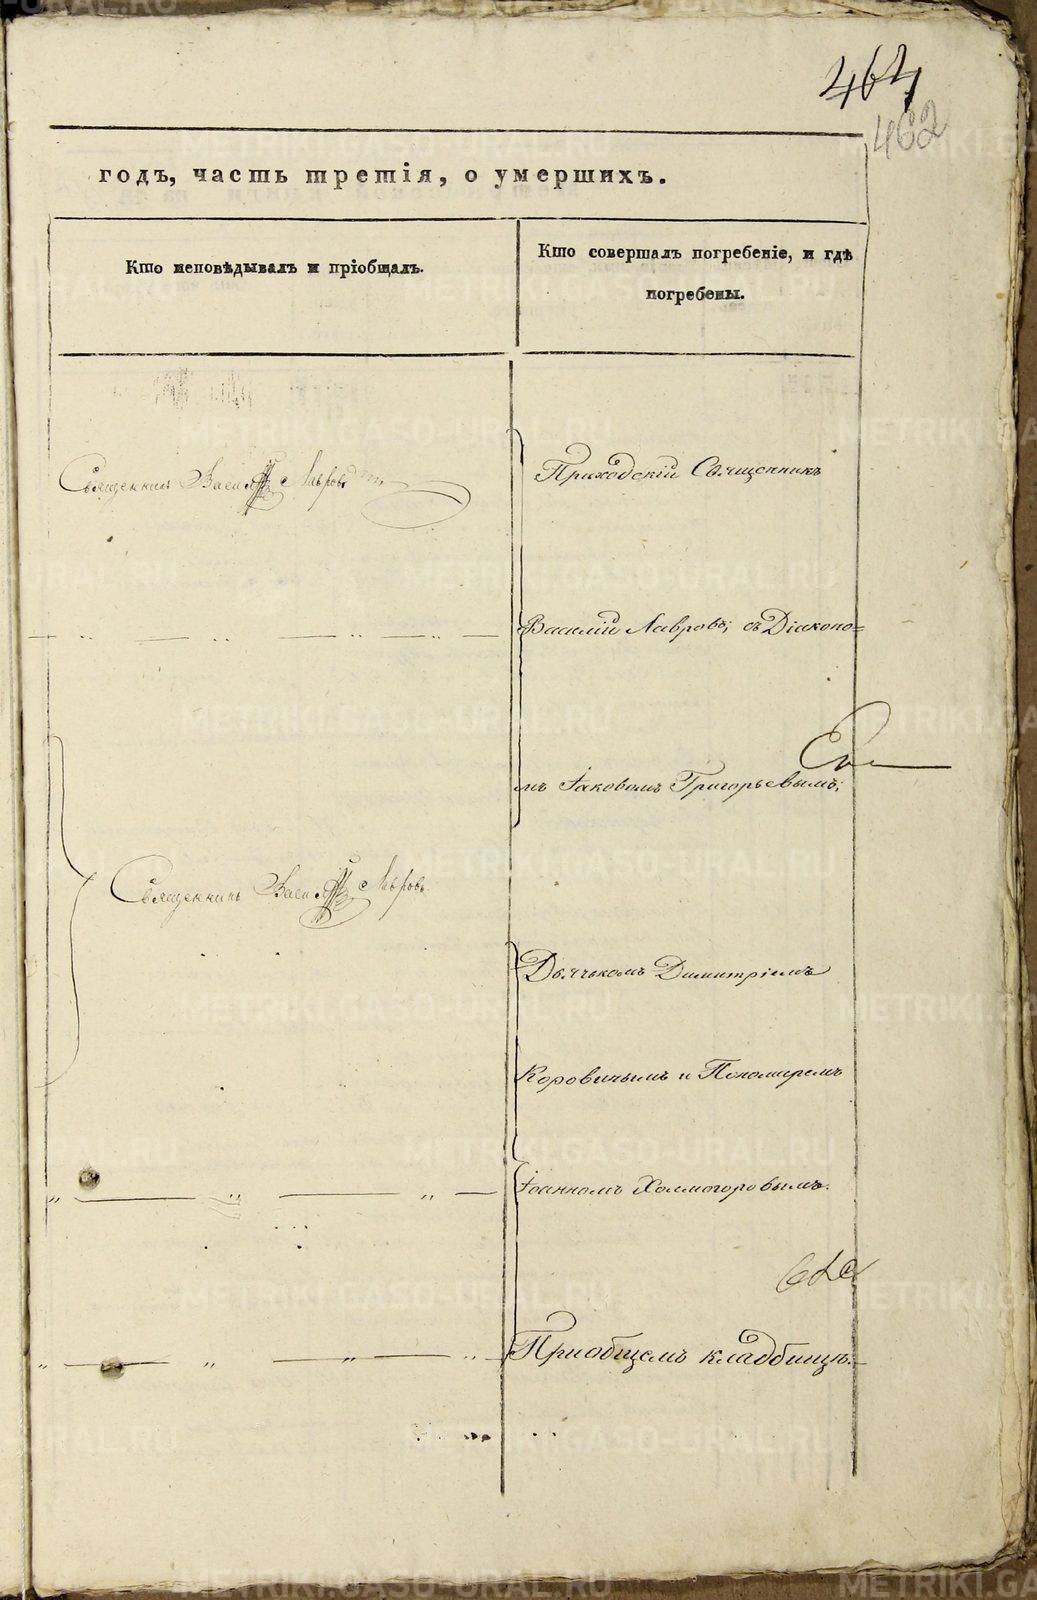 464
462
годъ, часть третія, о умершихъ.
Кто исповѣдывалъ и пріобщалъ.
Кто совершалъ погребеніе, и гдѣ
погребены.
Священникъ Василій Лавровъ
Приходскій Священникъ
Василій Лавровъ; съ Діаконо=
мъ Іаковомъ Григорьевымъ;
Священникъ Василій Лавровъ
Дьячькомъ Димитріемъ
Коровинымъ и Пономаремъ
Іоанномъ Холмогоровымъ.
Приобщемъ кладбищѣ.
METRIKI.GASO-URAL.RU